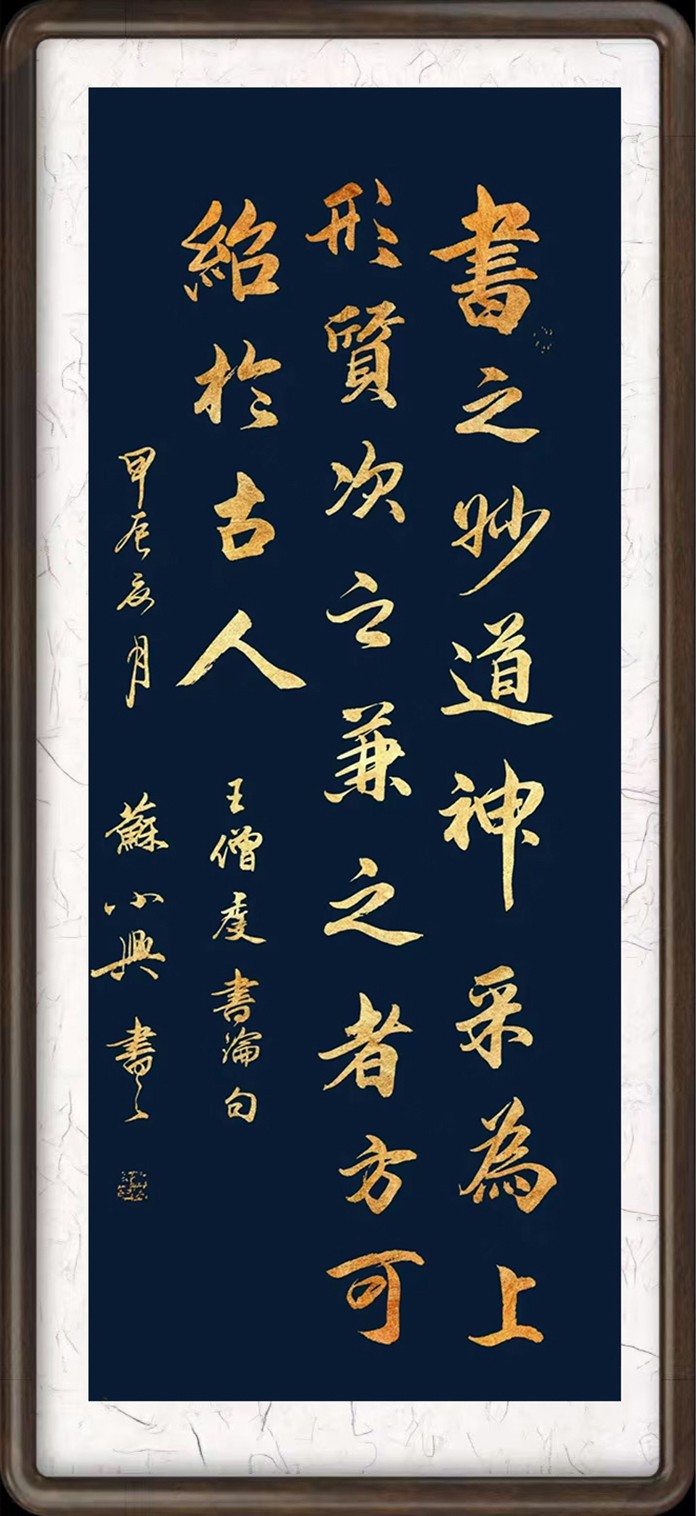 書之妙道神采為上
形質次之兼之者方可
紹於古人
王僧虔書論句
甲辰亥月
蘇小興書